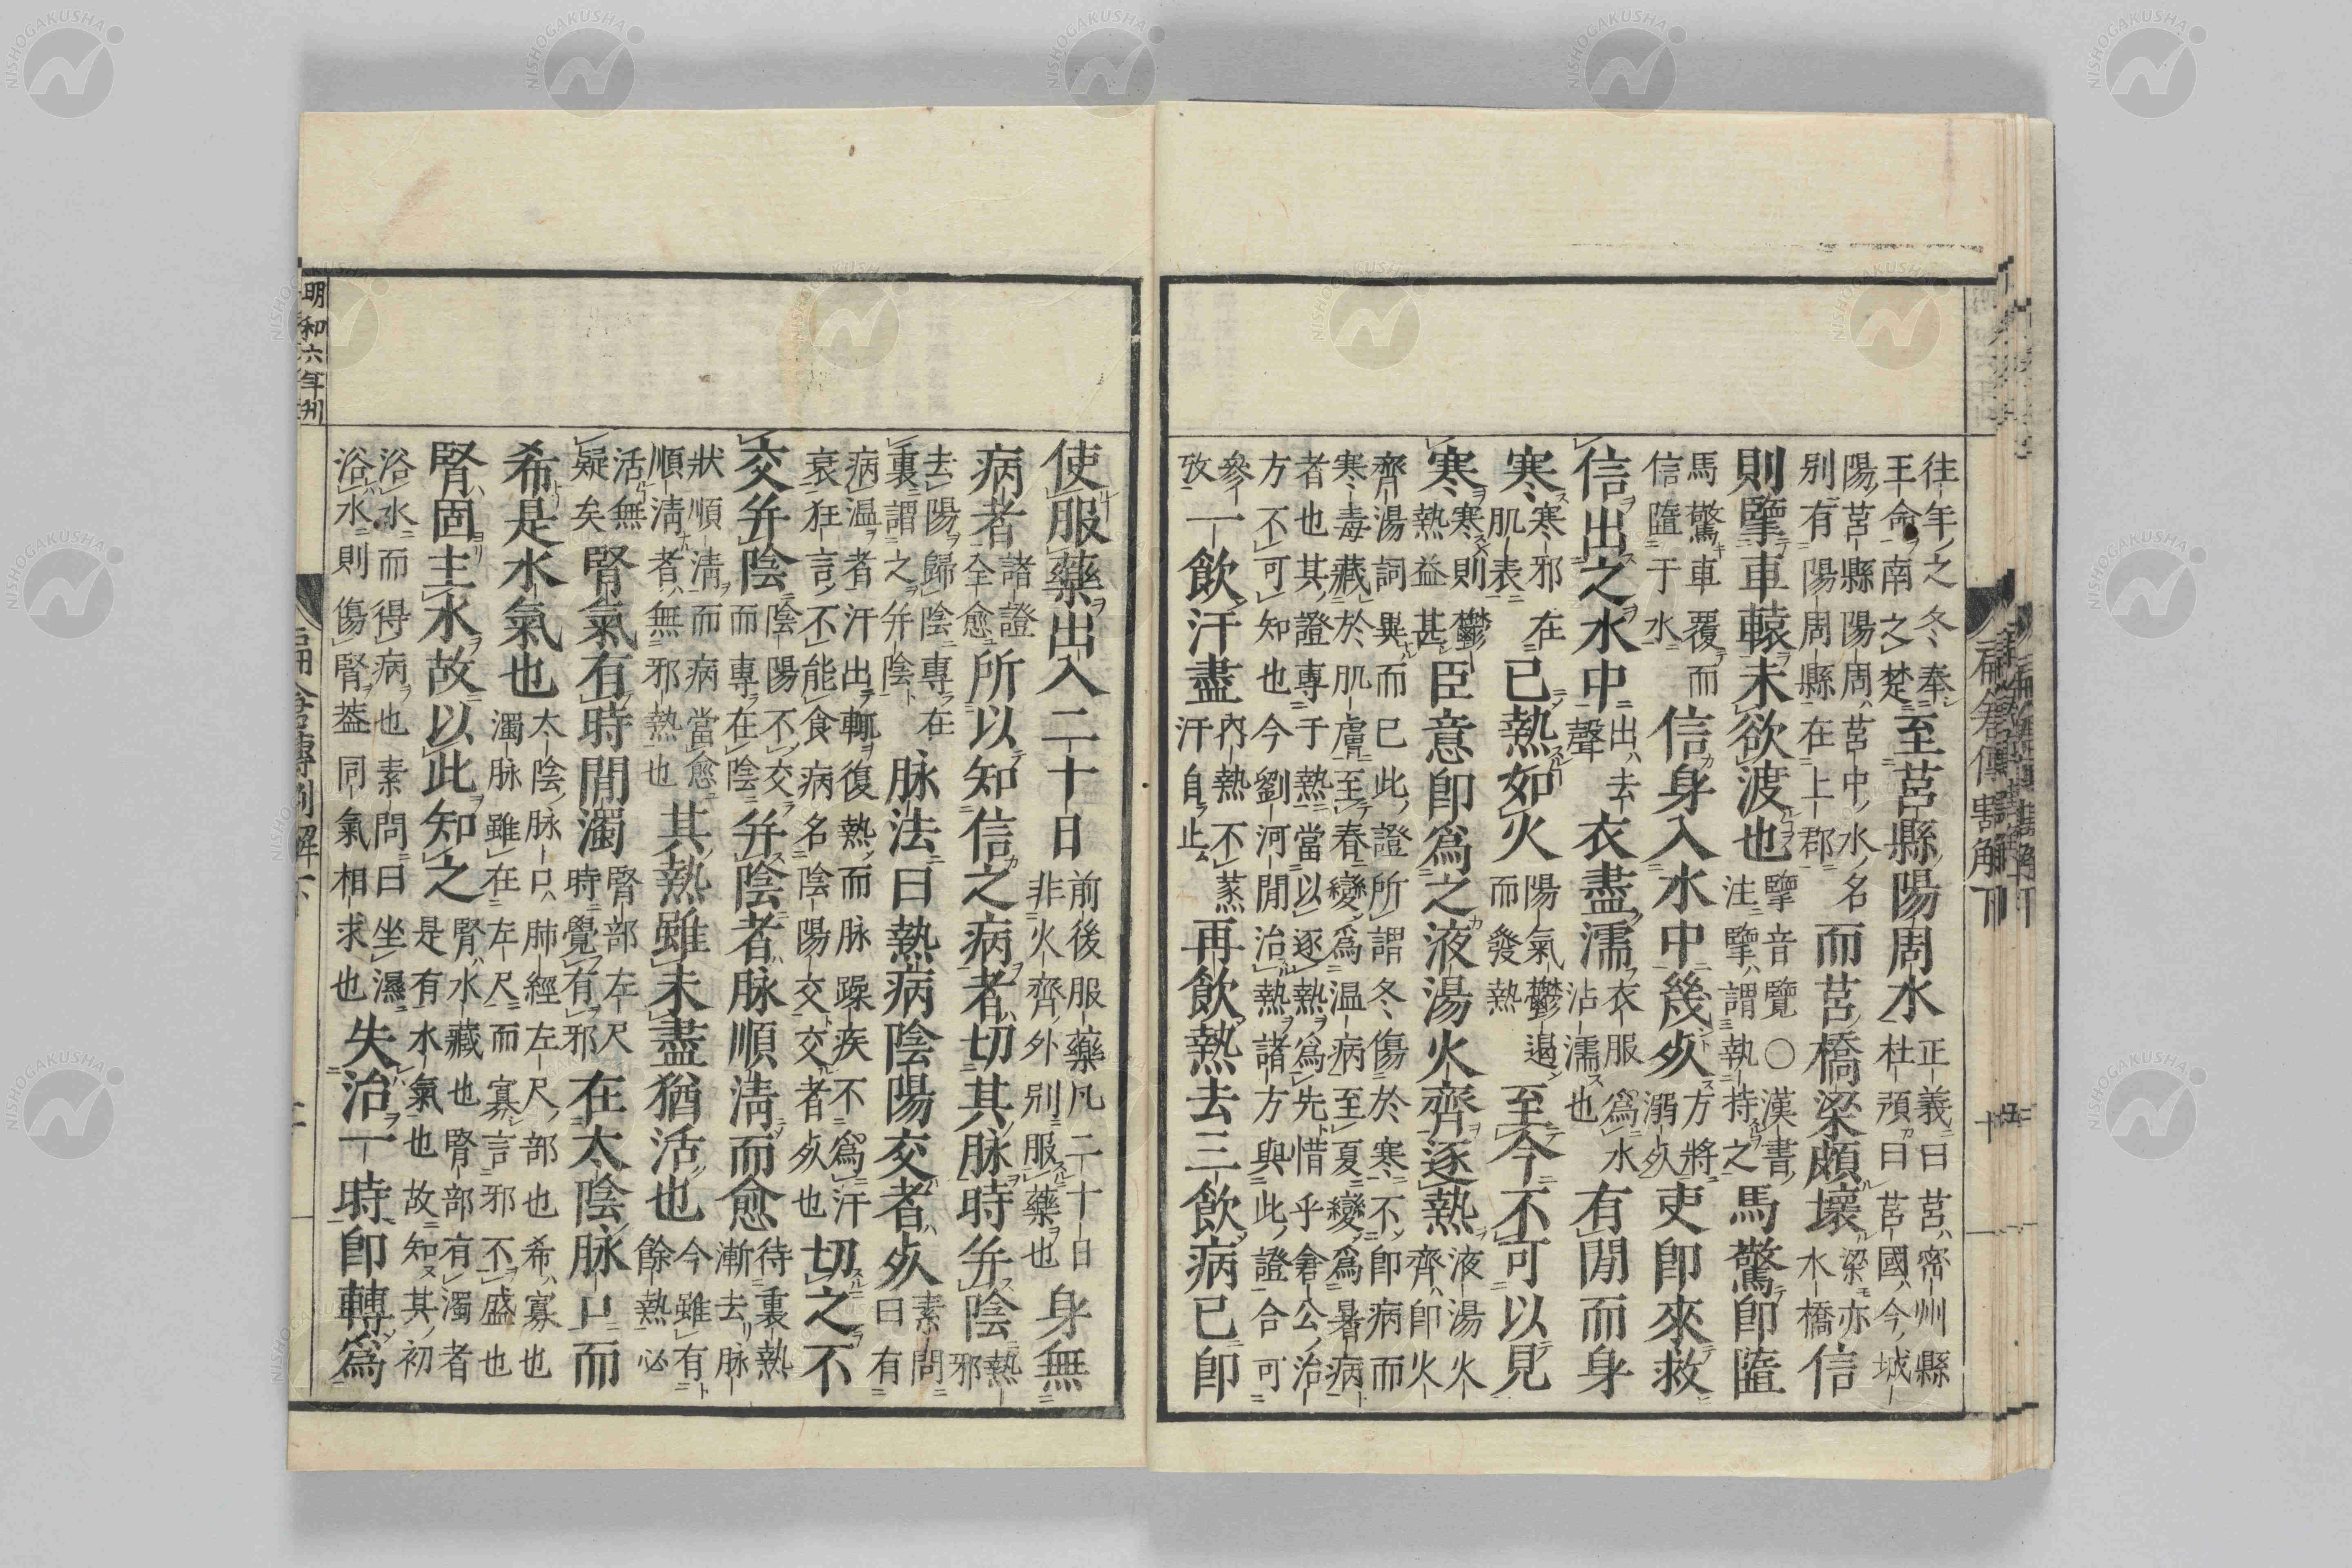 往年之冬奉王命南之楚至莒縣陽周水正義曰莒密州縣杜預曰莒國今城
陽莒縣陽周莒中水名別有陽周縣在上郡而莒橋梁頗壞梁亦水橋信
則擥車轅未欲渡也擥音覽〇漢書注擥謂執持之馬驚即墮
馬驚車覆而信墮于水信身入水中幾死方將溺死吏即來救
信出之水中出去聲衣盡濡衣服爲水沾濡也有間而身
寒寒邪在肌表已熱如火陽氣鬱遏而發熱至今不可以見
寒寒則鬱熱益甚臣意即爲之液湯火齊逐熱液湯火齊即火
齊湯詞異而已此證所謂冬傷於寒不即病而寒毒藏於肌膚至春變爲温病至夏變爲暑病
者也其證專于熱當以逐熱爲先惜乎倉公治方不可知也今劉河間治熱諸方與此證合可
參攷一飲汗盡内熱不蒸汗自止再飲熱去三飲病已即
使服藥出入二十日前後服藥凡二十日非火齊外別服藥也身無
病者諸證全愈所以知信之病者切其脉時并陰熱邪
去陽歸陰專在裏謂之并陰脉法曰熱病陰陽交者死素問曰有
病温者汗出輒復熱而脉躁疾不爲汗衰狂言不能食病名陰陽交交者死也切之不
交并陰陰陽不交而專在陰并陰者脉順清而愈待裏熱漸去脉
狀順清而病當愈順清者無邪熱也其熱雖未盡猶活也今雖有餘熱必
活無疑矣腎氣有時間濁腎部左尺時覺有邪在太陰脉口而
希是水氣也太陰脉口肺經左尺部也希寡也濁脉雖在左尺而寡言邪不盛也
腎固主水故以此知之腎水藏也腎部有濁者是有水氣也故知其初
浴水而得病也素問曰坐濕浴水則傷腎葢同氣相求也失治一時即轉爲
明和六年刊
倉傳割解下